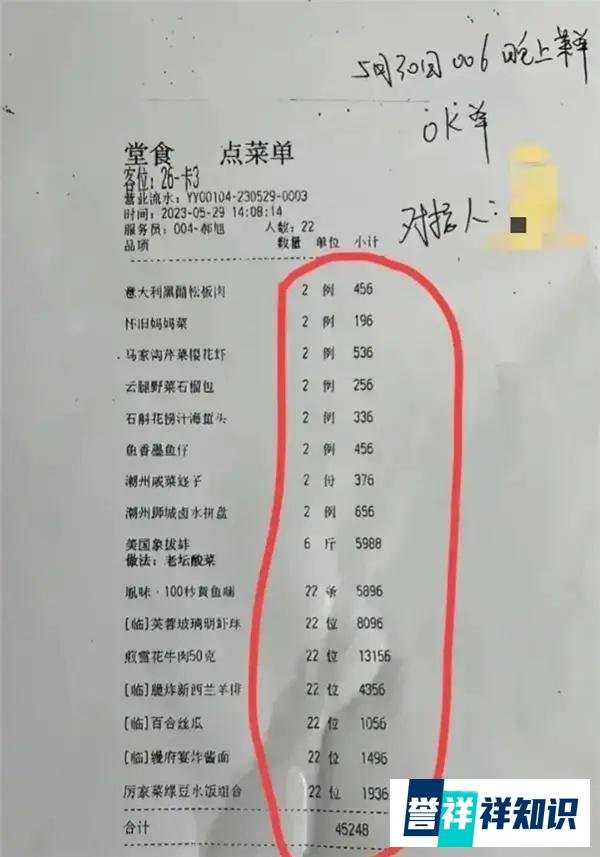 5月30日006晚上菜单
OK单
堂食 点菜单
客位: 26-卡3
营业流水: YY00104-230529-0003
时间: 2023-05-29 14:08:14
服务员: 004-郝旭 人数: 22
对接人:
品项 数量 单位 小计
意大利黑醋松板肉 2 例 456
怀旧妈妈菜 2 例 196
马家沟芹菜樱花虾 2 例 536
云腿野菜石榴包 2 例 256
石斛花捞汁海蜇头 2 例 336
鱼香墨鱼仔 2 例 456
潮州咸菜蛏子 2 份 376
潮州狮城卤水拼盘 2 例 656
美国象拔蚌 6 斤 5988
做法: 老坛酸菜
·100秒黄鱼 22 条 5896
[临]芙蓉玻璃明虾球 22 位 8096
煎雪花牛肉50克 22 位 13156
[临]脆炸新西兰羊排 22 位 4356
[临]百合丝瓜 22 位 1056
[临]馒府宴炸酱面 22 位 1496
厉家菜绿豆水饭组合 22 位 1936
合计 45248
誉祥祥知识